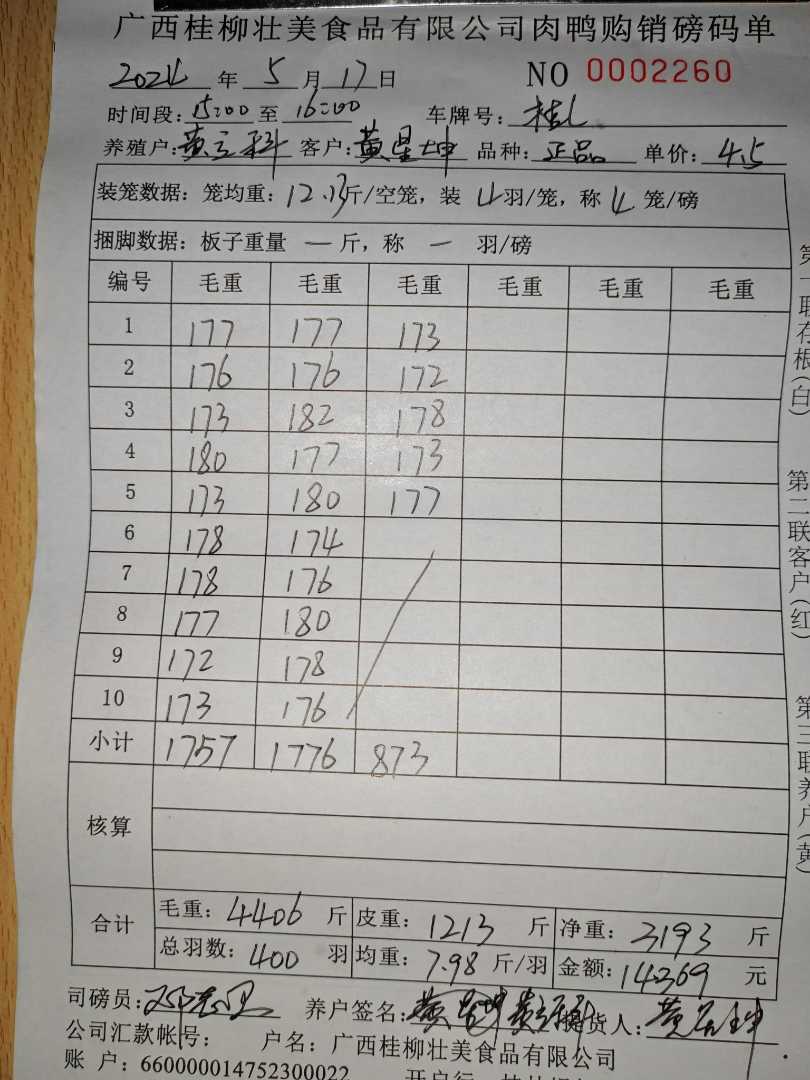 广西桂柳壮美食品有限公司肉鸭购销磅码单
2024 年 5 月 17 日 NO 0002260
时间段: 15:00 至 16:00 车牌号: 桂L
养殖户: 黄立科 客户: 黄星坤 品种: 正品 单价: 4.5
装笼数据: 笼均重: 12.13斤/空笼, 装 4 羽/笼, 称 4 笼/磅
捆脚数据: 板子重量 一 斤, 称 一 羽/磅
编号 毛重 毛重 毛重 毛重 毛重 毛重
1 177 177 173
2 176 176 172
3 173 182 178
4 180 177 173
5 173 180 177
6 178 174
7 178 176
8 177 180
9 172 178
10 173 176
小计 1757 1776 873
核算
合计 毛重: 4406 斤 皮重: 1213 斤 净重: 3193 斤
总羽数: 400 羽 均重: 7.98 斤/羽 金额: 14369 元
司磅员: 养户签名: 货人:
公司汇款帐号: 户名: 广西桂柳壮美食品有限公司
账 户: 660000014752300022 开户行
第一联存根(白)
第二联客户(红)
第三联养户(黄